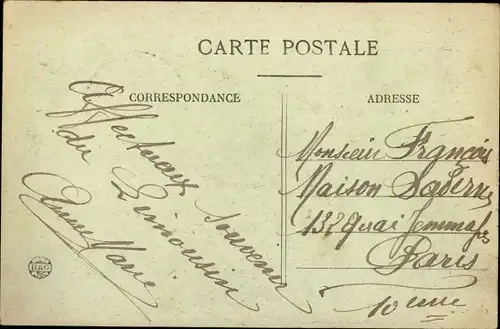 CARTE POSTALE
CORRESPONDANCE
Affectueux souvenir
du Limousin
Anne Marie
B&G
ADRESSE
Monsieur François
Maison
132 Quai Jemmapes
Paris
10eme